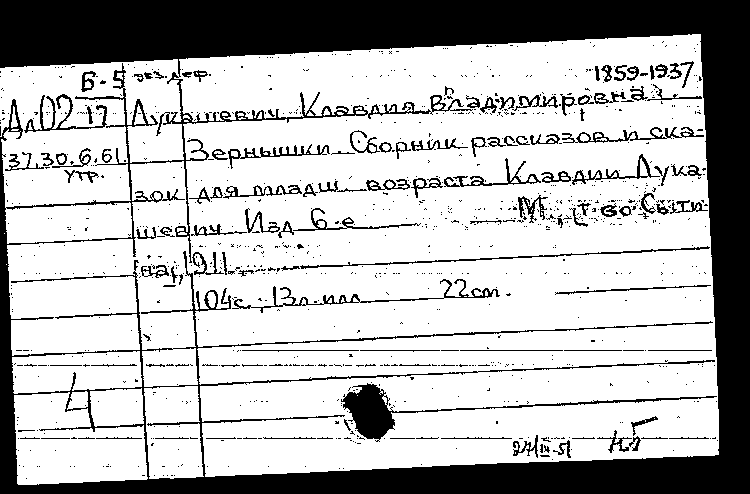 Б-5 экз. деф.
1859-1937.
Дл02 17 Лукашевич, Клавдия Владимировна.
37.30.6.61 Зернышки. Сборник рассказов и ска-
утр.
зок для младш. возраста Клавдии Лука-
шевич. Изд. 6-е М., т-во Сыти-
на, 1911.
104с.; 13л. илл. 22см.
4
24/IV-51